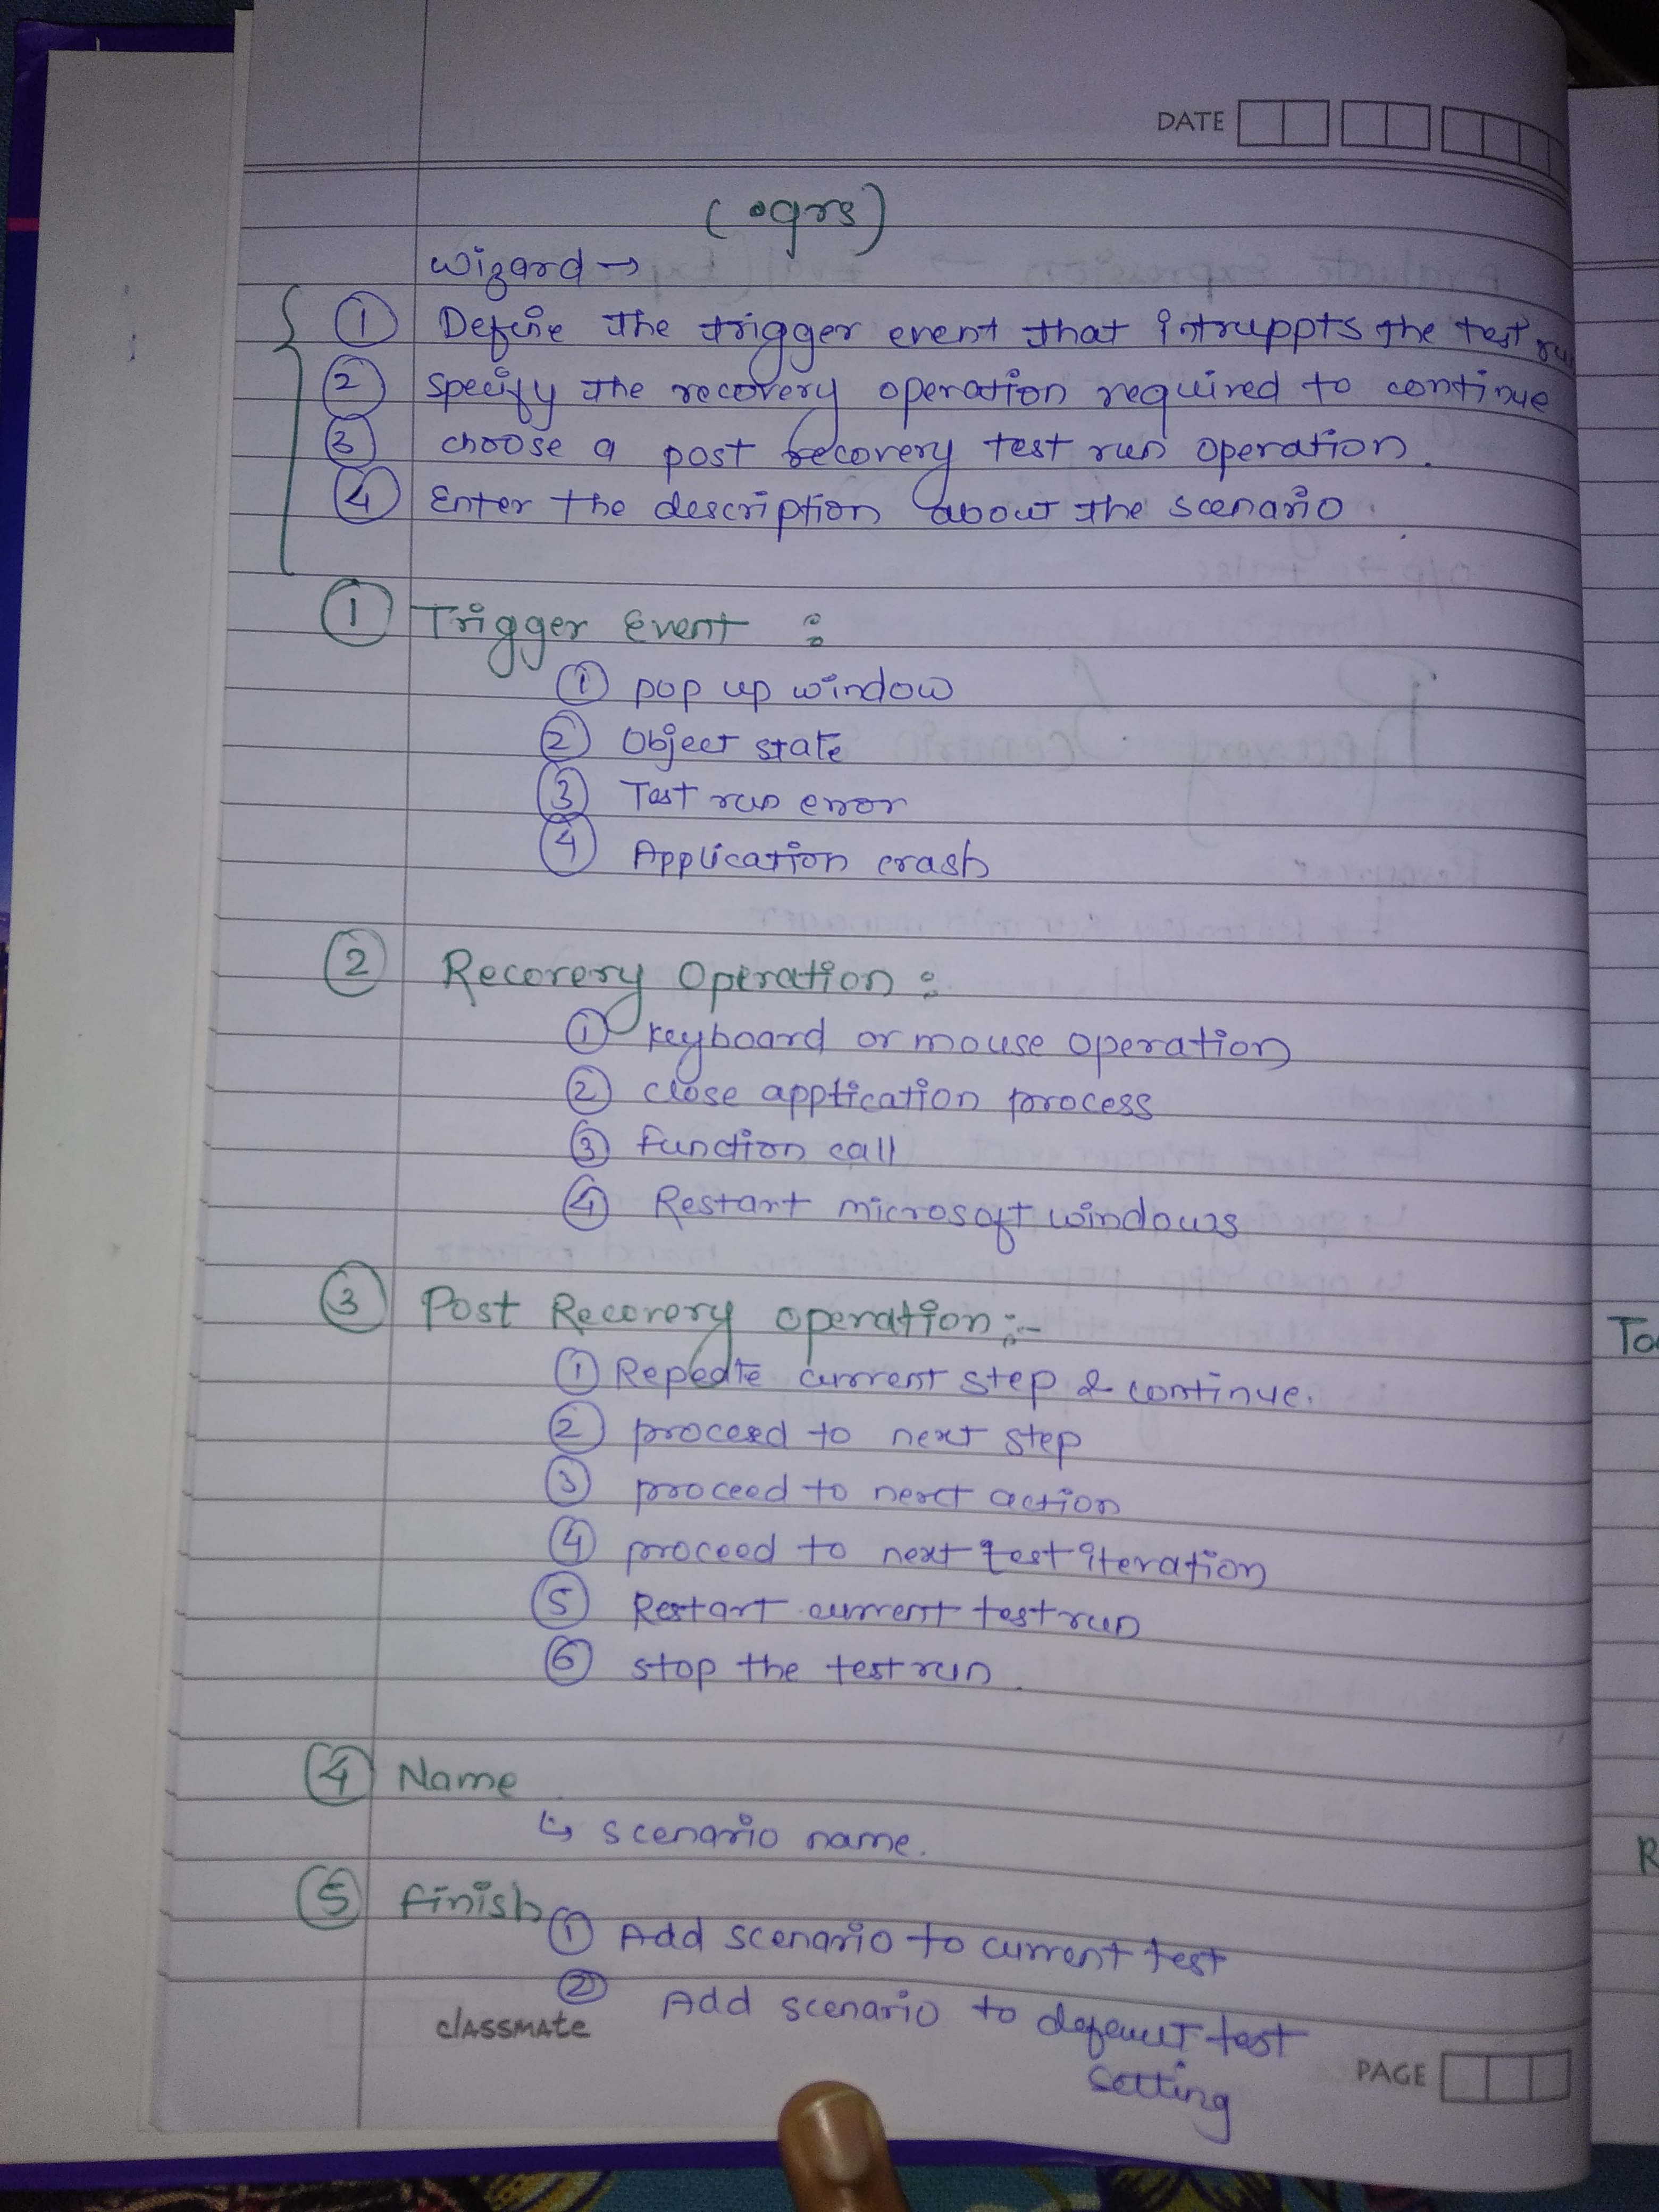 DATE
(.qrs)
Wizard →
① Define the trigger event that intruppts the test run
② Specify the recovery operation required to continue
③ choose a post recovery test run operation.
④ Enter the description about the scenario
① Trigger Event :
① pop up window
② Object state
③ Test run error
④ Application crash
② Recovery Operation :
① keyboard or mouse operation
② close application process
③ function call
④ Restart microsoft windows
③ Post Recovery operation :-
① Repeate current step & continue.
② proceed to next step
③ proceed to next action
④ proceed to next test iteration
⑤ Restart current test run
⑥ stop the test run
④ Name
↳ scenario name.
⑤ finish
① Add scenario to current test
② Add scenario to default test
setting
classmate
PAGE